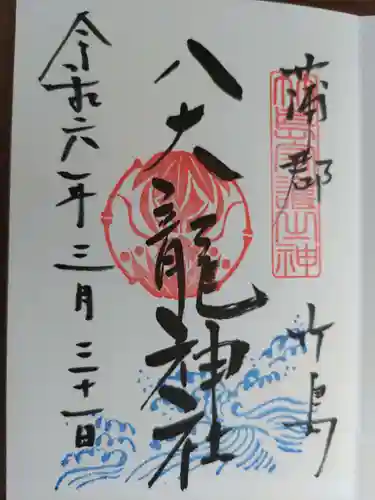 蒲郡
竹島
八大龍神社
令和六年三月三十一日